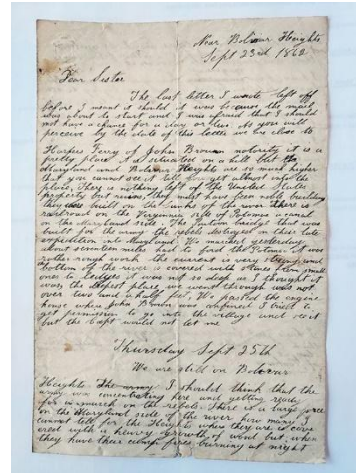 Near Bolivar Heights
Sept 23rd 1862
Dear Sister
The last letter I wrote left off
before I meant it should it was because the mail
was about to start and I was afraid that I should
not have a chance for a day or two. As you will
perceive by the date of this letter we are close to
Harpers Ferry of John Brown notority it is a
pretty place it is situated on a hill but the
Maryland and Bolivar Heights are so much higher
that you cannot see it till you get almost into the
place. There is nothing left of the United States
property but ruins, they must have been noble buildings
they were built on the banks of the river there is a
railroad on the Virginia side of Potomac a canal
on the Maryland side. The bridge that was
built for the army the rebels destroyed in there late
expedition into Maryland. We marched yesterday
about seventeen miles had to ford the Potomac it was
rather rough work the current is very strong and
bottom of the river is covered with stones from small
ones to ledges it was not so deep as I thought it
was the deepest place we went through was not
over two and a half feet. We passed the engine
house where John Brown was confined I tried to
get permission to go into the village and see it
but the Capt would not let me
Thursday Sept 25th
We are still on Bolivar
Heights I should think that the
army was concentrating here and getting ready
for a march on the rebels. There is a large force
on the Maryland side of the river, how many I
cannot tell for the Heights where they are is cov
ered with a heavy growth of wood but when
they have their camp fires burning at night